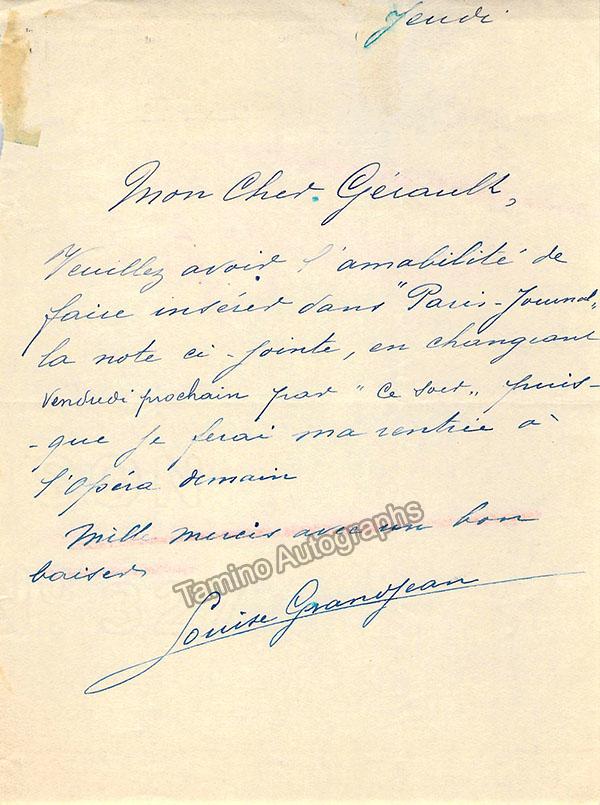 Jeudi
Mon Cher Gérault,
Veuillez avoir l'amabilité de
faire insérer dans "Paris-Journal"
la note ci-jointe, en changeant
vendredi prochain par "ce soir" puis-
-que je ferai ma rentrée à
l'Opéra demain
Mille mercis avec un bon
baiser
Tamino Autographs
Louise Grandjean